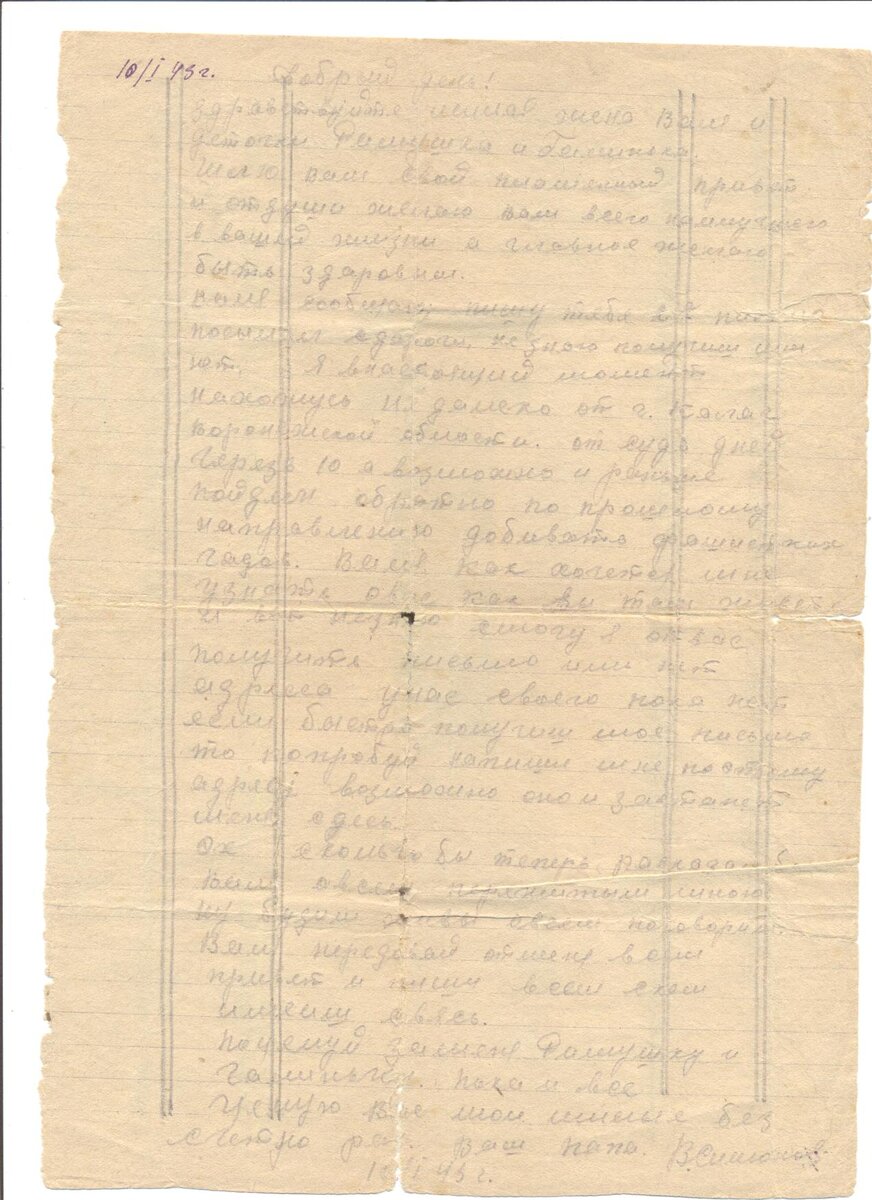 10/I 43 г.
Добрый день!
здравствуйте милая жена Валя и
деточки Римушка и Галинька.
Шлю вам свой пламенный привет
и отдуши желаю вам всего наилучшего
в вашей жизни а главное желаю
быть здаровыи.
Валя сообщаю, пишу тебе
посылал сдороги, незнаю получиш или
нет. Я внастоящий момент
нахожусь не далеко от г. Калач
воронежской области. от сюда дней
через 10 а возможно и раньше
пойдем обратно по прошлому
направлению добивать фашистких
гадов. Валя как хочется мне
узнать овас как вы там живете
и вот незнаю смогу я от вас
получить письмо или нет
адреса унас своего пока нет
если быстро получиш мое письмо
то попробуй напиши мне постарому
адресу возможно оно и застанет
меня сдесь.
Эх сколько бы теперь расказал
Вам овсем пережитым мною
ну будем живы овсем поговорим.
Валя передовай отменя всем
привет и пиши всем скем
имееш связь.
Поцелуй заменя Римушку и
Галиньку. Пока и всё
Целую Вас мои милые без
счетно раз. Ваш папа. ВСимонов
10/I 43 г.